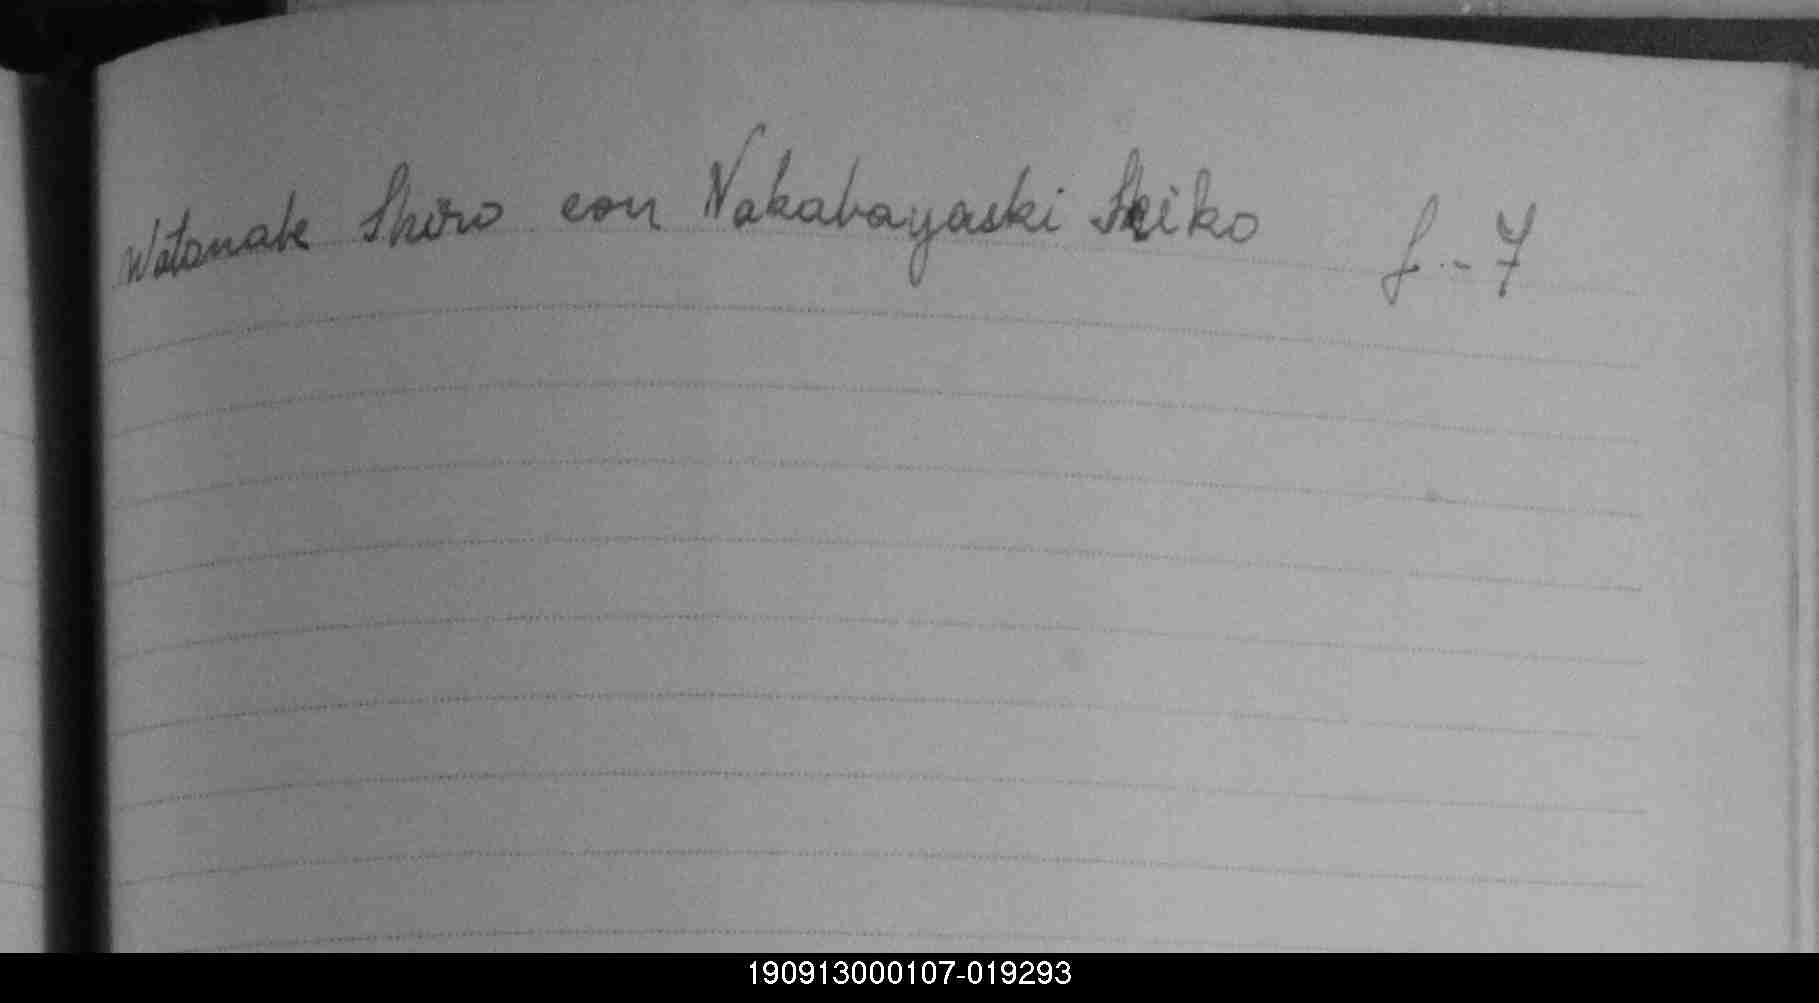 Watanabe Shiro con Nakabayashi Seiko f.- 7
190913000107-019293